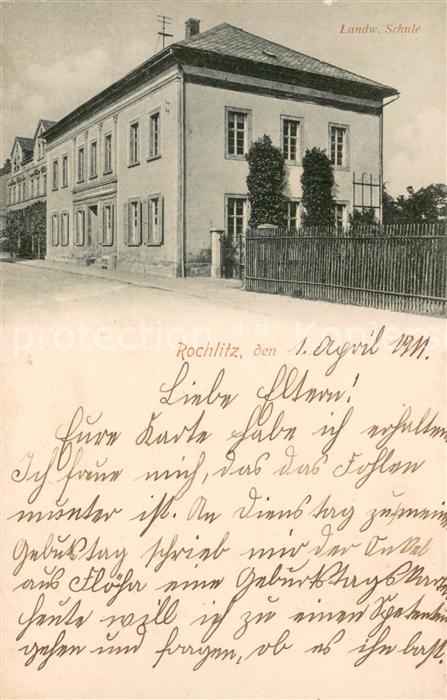 Landw. Schule
Rochlitz, den 1. April 1911.
Liebe Eltern!
Eure Karte habe ich erhalten
Ich freue mich, das das Fohlen
munter ist. An Dienstag zu mein
Gebutstag schrieb mir der Onkel
aus Flöha eine Geburtstagskarte
heute will ich zu einen
gehen und fragen, ob es ihn baßt.